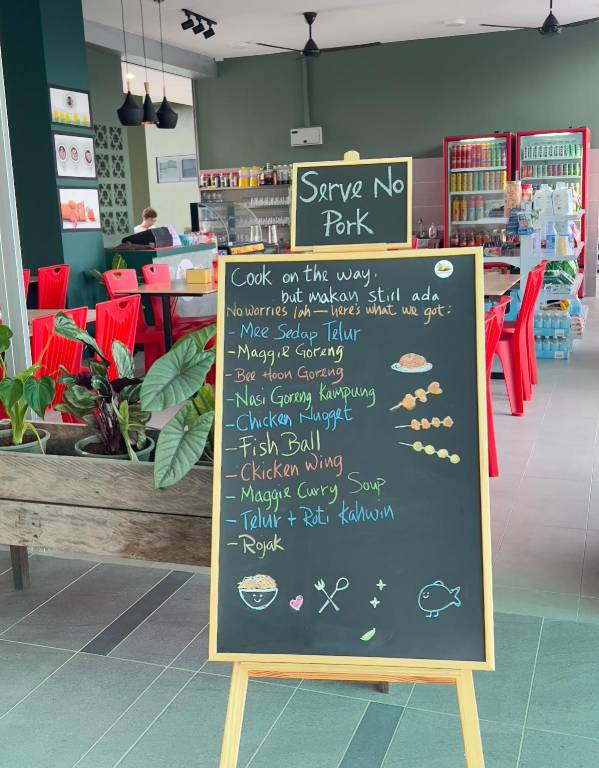 Serve No
Pork
Cook on the way.
but makan still ada
No worries lah — here's what we got:
- Mee Sedap Telur
- Maggie Goreng
- Bee Hoon Goreng
- Nasi Goreng Kampung
- Chicken Nugget
- Fish Ball
- Chicken Wing
- Maggie Curry Soup
- Telur + Roti Kahwin
- Rojak